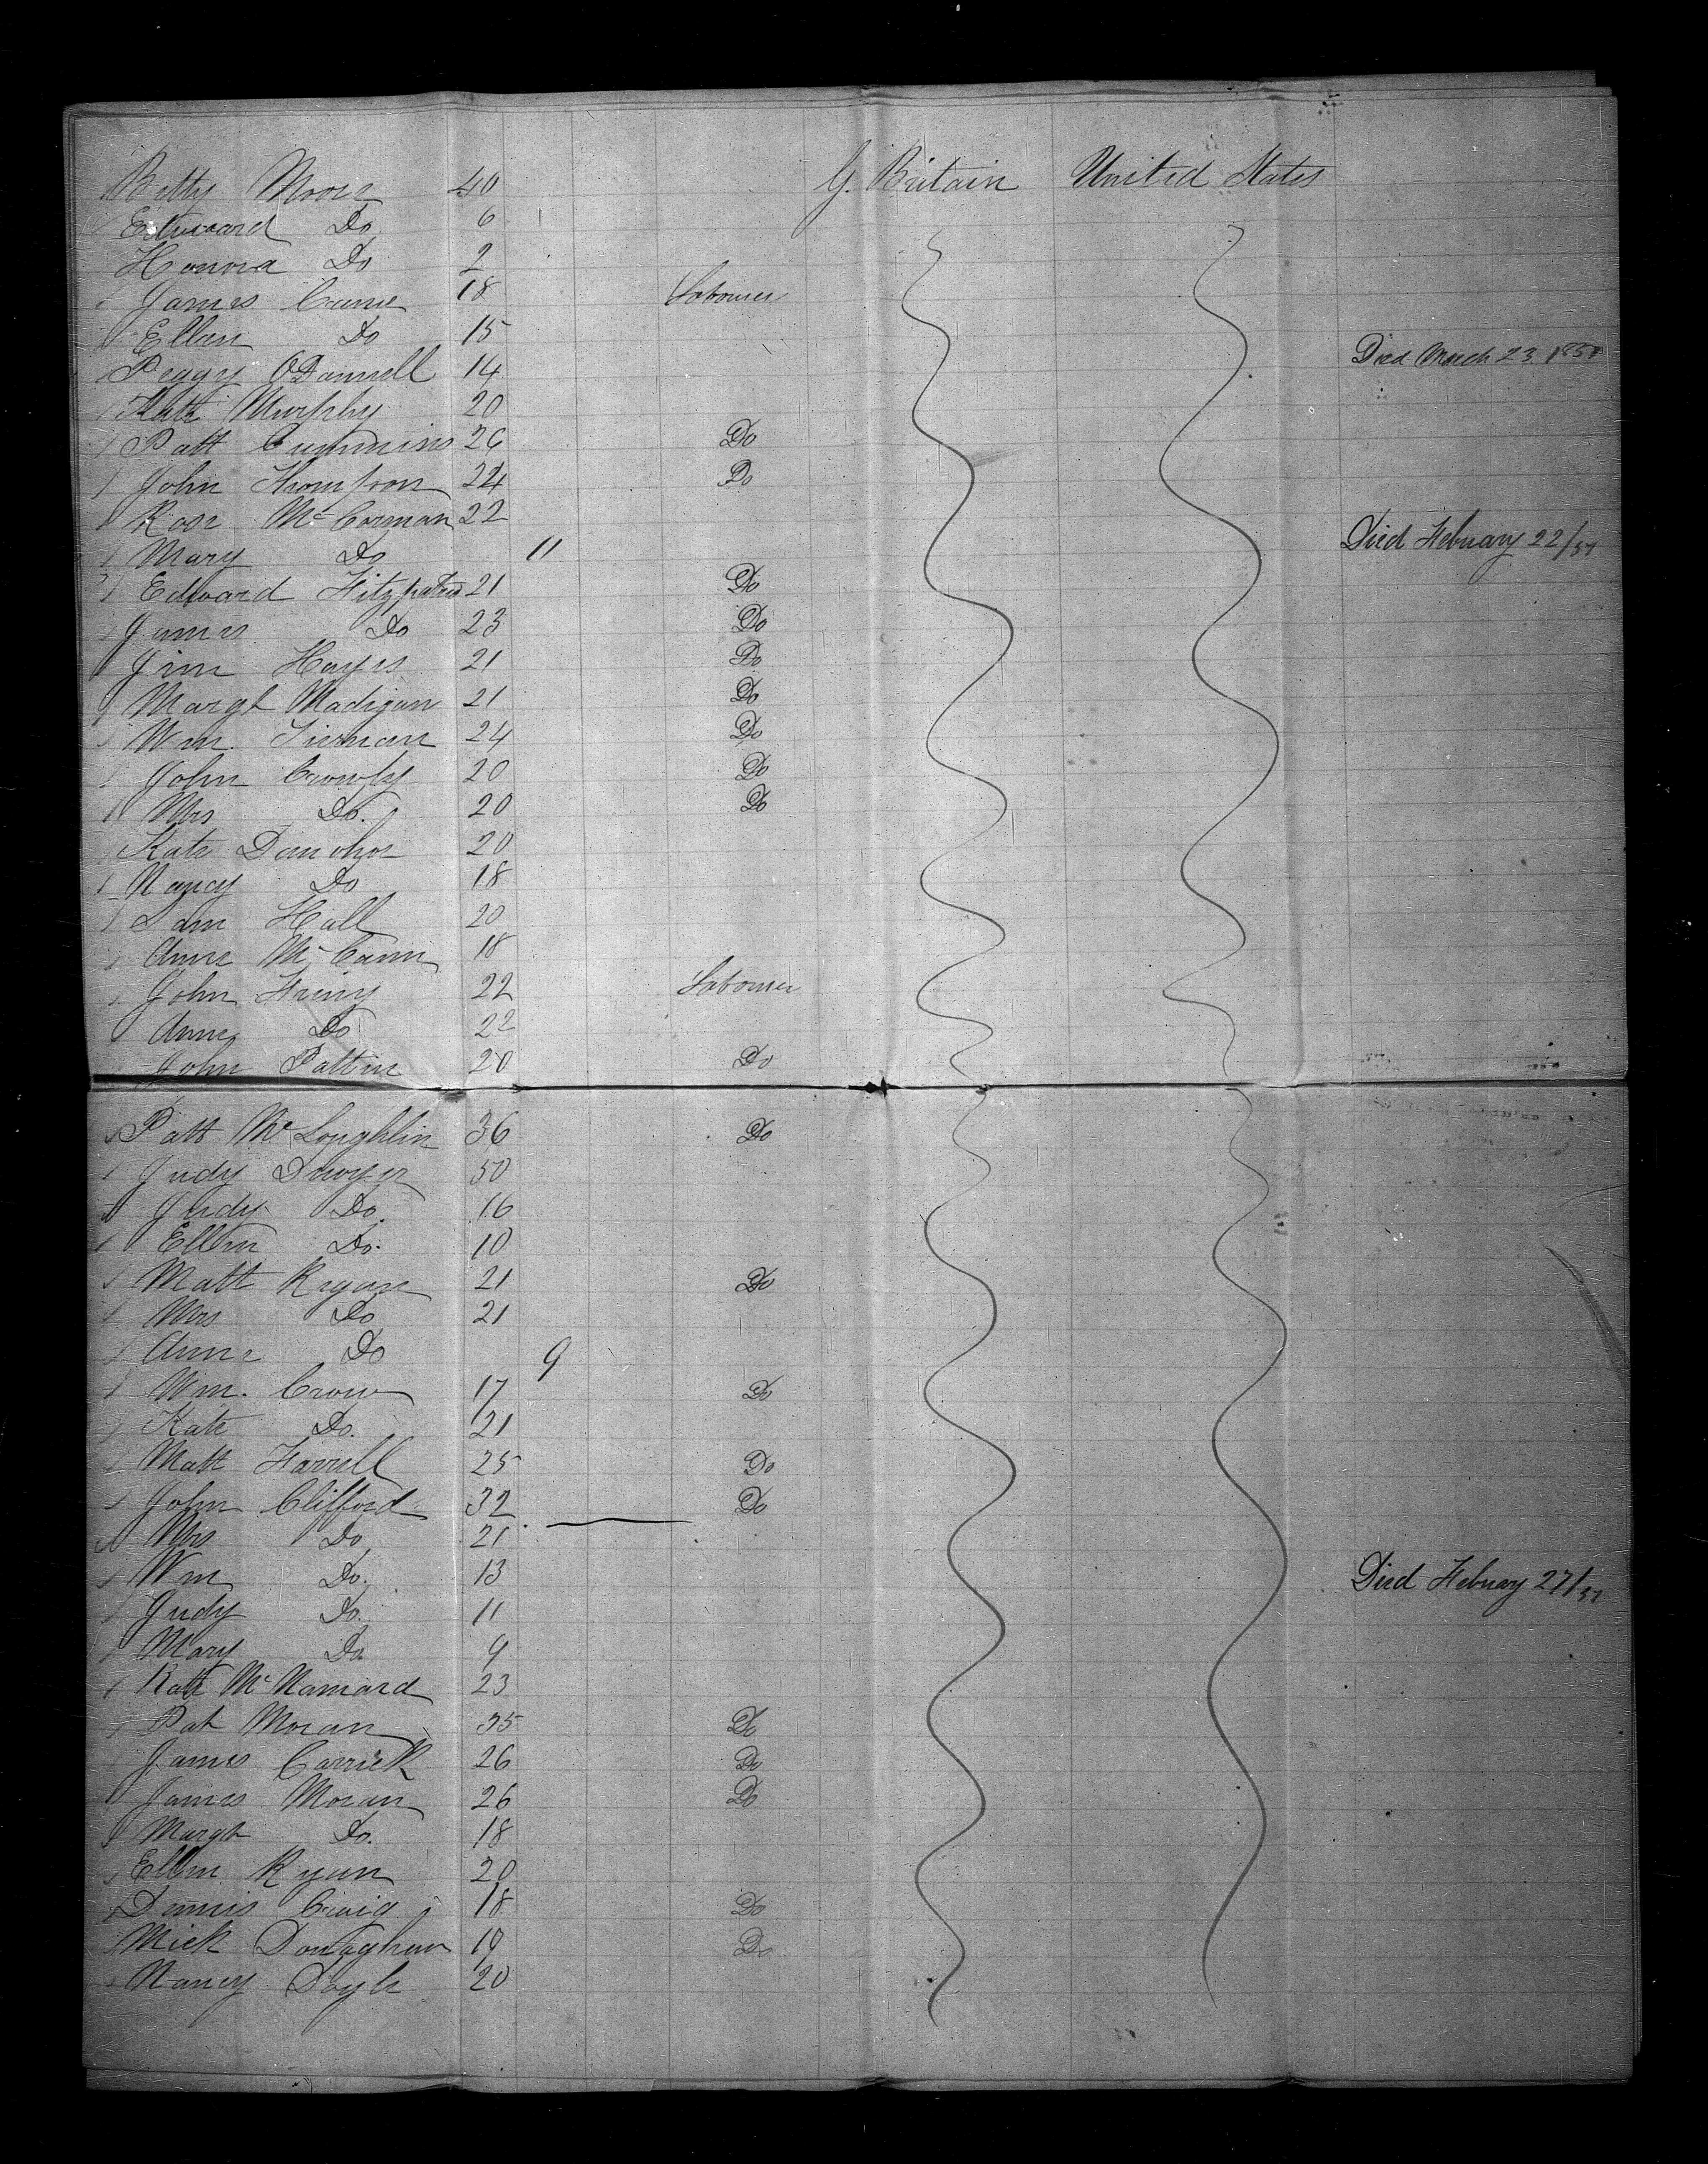 Betty Moore 40 G. Britain United States
Edward Do 6
Honora Do 2
James Cume 18 Labourer
Ellen Do 15 Died March 23 1851
Peggy ODonnell 14
Kate Murphy 20
Patt Cummins 26 Do
John Thompson 24 Do
Rose McGorman 22
Mary Do 11 Died Febuary 22/51
Edward Fitzpatric 21 Do
James Do 23 Do
Jim Hayes 21 Do
Margt Madigan 21 Do
Wm. Tiernan 24 Do
John Crowly 20 Do
Mrs Do. 20 Do
Kate Donohoe 20
Nancy Do 18
Sam Hall 20
Anne McCann 18
John 22 Labourer
Anne Do 22
John Pattin 20 Do
Patt McLoughlin 36 Do
Judy Dwyer 50
Judy Do 16
Ellen Do. 10
Matt Ryan 21 Do
Mrs Do 21
Anne Do 9
Wm. Crow 17 Do
Kate Do. 21
Matt Farrell 25 Do
John Clifford 32 Do
Mrs Do 21
Wm Do. 13 Died Febuary 27/51
Judy Do. 11
Mary Do. 9
Kate McNamara 23
Pat Moran 35 Do
James Carrick 26 Do
James Moran 26 Do
Margt Do. 18
Ellen Ryan 20
Dennis Craig 18 Do
Mick Donaghue 19 Do
Nancy Doyle 20